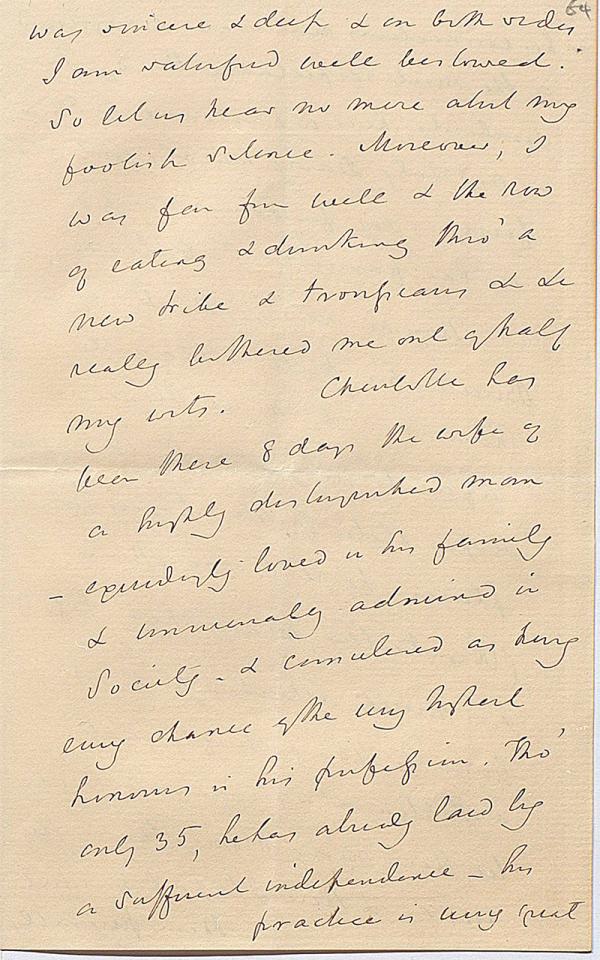 64
was sincere & deep & on both sides
I am satisfied well bestowed.
So let us hear no more abt my
foolish silence. Moreover, I
was far from well & the row
of eating & drinking thro' a
new tribe & &c &c
really bothered me out of half
my wits. Charlotte has
been these 8 days the wife of
a highly distinguished man
- exceedingly loved in his family
& universally admired in
Society - & considered as having
every chance of the very highest
honours in his profession. Tho'
only 35, he has already laid by
a sufficient independence - his
practice is very great